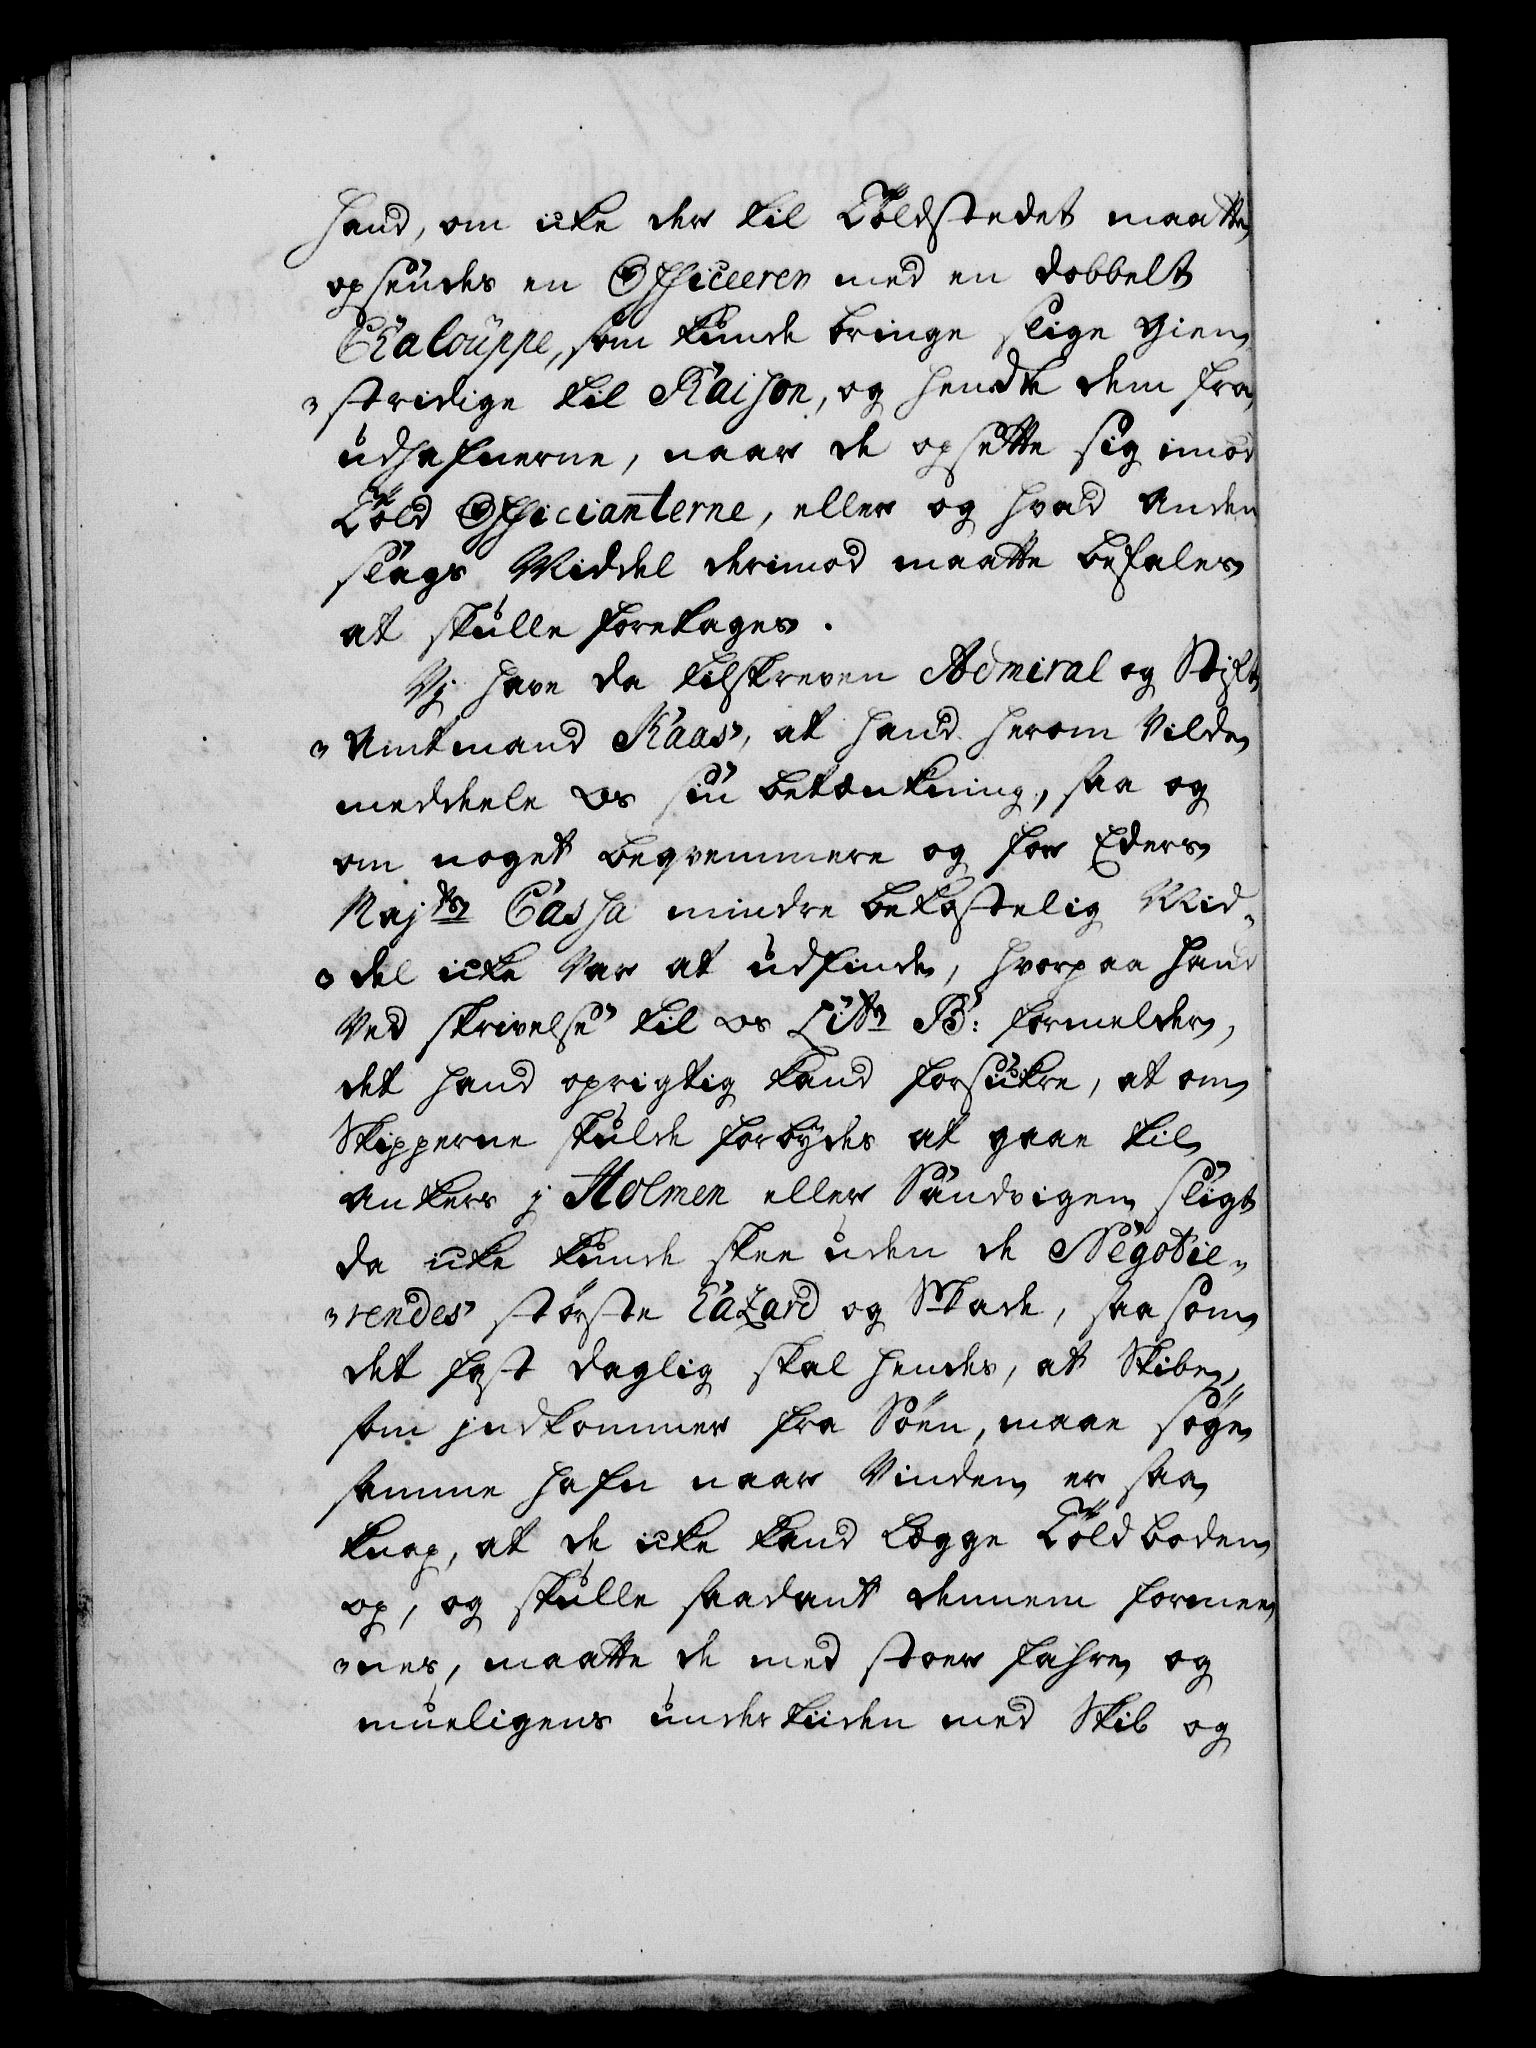 hand, om icke der til Töldstedet maatte
opsendes en Officeerer med en dobbelt
Chalouppe, som kunde bringe slige Gien
-stridige til Raison, og hendte dem fra
udhafnerne, naar de opsette sig imod
Töld Officianterne, eller og hvad Anden
slags Middel derimod maatte befales
at skulle foretages.
Vj have da tilskreven Admiral og Stift
-Amtmand Kaas, at hand herom Vilde
meddeele os sin betænkning, saa og
om noget beqvemmere og for Eders
Majts Cassa mindre bekostelig Mid-
-del icke Var at udfinde, hvorpaa hand
Ved skrivelse til os Litr B: formelder,
det hand oprigtig kand forsickre, at om
Skipperne skulde forbydes at gaae til
Ankers j Holmen eller Sandvigen sligt
da icke kunde skee uden de Negotie-
-rendes störste Hazard og Skade, saasom
det fast daglig skal hendes, at Skibe,
som jndkommer fra Söen, maae söge
samme hafn naar Vinden er saa
knap, at de icke kand Legge Töldboden
op, og skulle saadant dennem formee
-nes, maatte de med stoer fahre og
mueligens undertiiden med Skib og